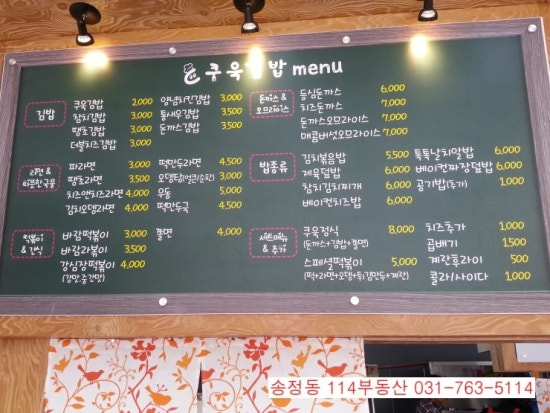 쿠욱김밥 menu
김밥
쿠욱김밥 2,000
참치김밥 3,000
땡초김밥 3,000
더블치즈김밥 3,000
양념치킨김밥 3,000
통새우김밥 3,500
돈까스김밥 3,500
돈까스 & 오므라이스
등심돈까스 6,000
치즈돈까스 7,000
돈까스오므라이스 7,000
매콤버섯오므라이스 7,000
라면 & 따뜻한국물
파라면 3,000
땡초라면 3,500
치즈앤치즈라면 4,000
김치오뎅라면 4,000
떡만두라면 4,500
우동 5,000
떡만두국 4,500
밥종류
김치볶음밥 5,500
제육덮밥 6,000
참치김치찌개 6,000
베이컨치즈밥 6,000
톡톡날치알밥 6,000
베이컨짜장덮밥 6,000
공기밥(추가) 1,000
떡볶이 & 간식
바람떡볶이 3,000
바람라볶이 3,500
강심장떡볶이 4,000
쫄면 4,000
쿠욱정식 8,000
(돈까스+김밥+쫄면)
스페셜떡볶이 5,000
(떡+라면+오뎅+튀김만두+계란)
치즈추가 1,000
곱배기 1,500
계란후라이 500
콜라/사이다 1,000
송정동 114부동산 031-763-5114